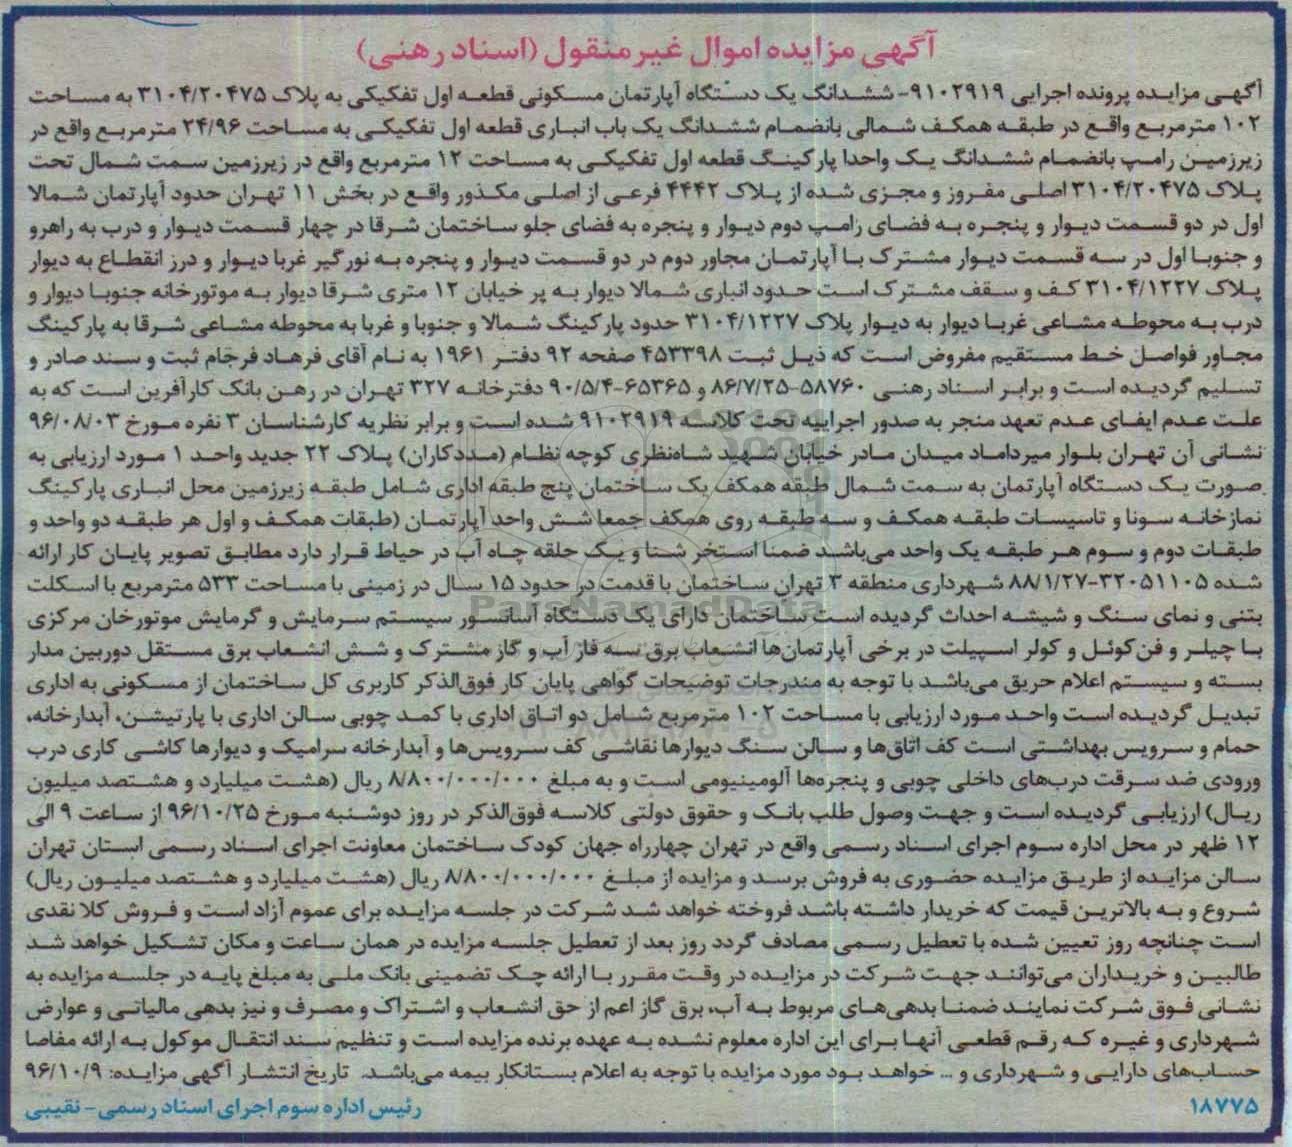 آگهی مزایده اموال غیرمنقول (اسناد رهنی)
آگهی مزایده پرونده اجرایی ۹۱۰۲۹۱۹- ششدانگ یک دستگاه آپارتمان مسکونی قطعه اول تفکیکی به پلاک ۳۱۰۴/۲۰۴۷۵ به مساحت
۱۰۲ مترمربع واقع در طبقه همکف شمالی بانضمام ششدانگ یک باب انباری قطعه اول تفکیکی به مساحت ۲۴/۹۶ مترمربع واقع در
زیرزمین رامپ بانضمام ششدانگ یک واحدا پارکینگ قطعه اول تفکیکی به مساحت ۱۲ مترمربع واقع در زیرزمین سمت شمال تحت
پلاک ۳۱۰۴/۲۰۴۷۵ اصلی مفروز و مجزی شده از پلاک ۴۴۴۲ فرعی از اصلی مکذور واقع در بخش ۱۱ تهران حدود آپارتمان شمالا
اول در دو قسمت دیوار و پنجره به فضای رامپ دوم دیوار و پنجره به فضای جلو ساختمان شرقا در چهار قسمت دیوار و درب به راهرو
و جنوبا اول در سه قسمت دیوار مشترک با آپارتمان مجاور دوم در دو قسمت دیوار و پنجره به نورگیر غربا دیوار و درز انقطاع به دیوار
پلاک ۳۱۰۴/۱۲۲۷ کف و سقف مشترک است حدود انباری شمالا دیوار به پر خیابان ۱۲ متری شرقا دیوار به موتورخانه جنوبا دیوار و
درب به محوطه مشاعی غربا دیوار به دیوار پلاک ۳۱۰۴/۱۲۲۷ حدود پارکینگ شمالا و جنوبا و غربا به محوطه مشاعی شرقا به پارکینگ
مجاور فواصل خط مستقیم مفروض است که ذیل ثبت ۴۵۳۳۹۸ صفحه ۹۲ دفتر ۱۹۶۱ به نام آقای فرهاد فرجام ثبت و سند صادر و
تسلیم گردیده است و برابر اسناد رهنی ۵۸۷۶۰-۸۶/۷/۲۵ و ۶۵۳۶۵-۹۰/۵/۴ دفترخانه ۳۲۷ تهران در رهن بانک کارآفرین است که به
علت عدم ایفای عدم تعهد منجر به صدور اجراییه تحت کلاسه ۹۱۰۲۹۱۹ شده است و برابر نظریه کارشناسان ۳ نفره مورخ ۹۶/۰۸/۰۳
نشانی آن تهران بلوار میرداماد میدان مادر خیابان شهید شاه‌نظری کوچه نظام (مددکاران) پلاک ۲۲ جدید واحد ۱ مورد ارزیابی به
صورت یک دستگاه آپارتمان به سمت شمال طبقه همکف یک ساختمان پنج طبقه اداری شامل طبقه زیرزمین محل انباری پارکینگ
نمازخانه سونا و تاسیسات طبقه همکف و سه طبقه روی همکف جمعا شش واحد آپارتمان (طبقات همکف و اول هر طبقه دو واحد و
طبقات دوم و سوم هر طبقه یک واحد می‌باشد ضمنا استخر شنا و یک حلقه چاه آب در حیاط قرار دارد مطابق تصویر پایان کار ارائه
شده ۳۲۰۵۱۱۰۵-۸۸/۱/۲۷ شهرداری منطقه ۳ تهران ساختمان با قدمت در حدود ۱۵ سال در زمینی با مساحت ۵۳۳ مترمربع با اسکلت
بتنی و نمای سنگ و شیشه احداث گردیده است ساختمان دارای یک دستگاه آسانسور سیستم سرمایش و گرمایش موتورخان مرکزی
با چیلر و فن‌کوئل و کولر اسپیلت در برخی آپارتمان‌ها انشعاب برق سه فاز آب و گاز مشترک و شش انشعاب برق مستقل دوربین مدار
بسته و سیستم اعلام حریق می‌باشد با توجه به مندرجات توضیحات گواهی پایان کار فوق‌الذکر کاربری کل ساختمان از مسکونی به اداری
تبدیل گردیده است واحد مورد ارزیابی با مساحت ۱۰۲ مترمربع شامل دو اتاق اداری با کمد چوبی سالن اداری با پارتیشن، آبدارخانه،
حمام و سرویس بهداشتی است کف اتاق‌ها و سالن سنگ دیوارها نقاشی کف سرویس‌ها و آبدارخانه سرامیک و دیوارها کاشی کاری درب
ورودی ضد سرقت درب‌های داخلی چوبی و پنجره‌ها آلومینیومی است و به مبلغ ۸/۸۰۰/۰۰۰/۰۰۰ ریال (هشت میلیارد و هشتصد میلیون
ریال) ارزیابی گردیده است و جهت وصول طلب بانک و حقوق دولتی کلاسه فوق‌الذکر در روز دوشنبه مورخ ۹۶/۱۰/۲۵ از ساعت ۹ الی
۱۲ ظهر در محل اداره سوم اجرای اسناد رسمی واقع در تهران چهارراه جهان کودک ساختمان معاونت اجرای اسناد رسمی استان تهران
سالن مزایده از طریق مزایده حضوری به فروش برسد و مزایده از مبلغ ۸/۸۰۰/۰۰۰/۰۰۰ ریال (هشت میلیارد و هشتصد میلیون ریال)
شروع و به بالاترین قیمت که خریدار داشته باشد فروخته خواهد شد شرکت در جلسه مزایده برای عموم آزاد است و فروش کلا نقدی
است چنانچه روز تعیین شده با تعطیل رسمی مصادف گردد روز بعد از تعطیل جلسه مزایده در همان ساعت و مکان تشکیل خواهد شد
طالبین و خریداران می‌توانند جهت شرکت در مزایده در وقت مقرر با ارائه چک تضمینی بانک ملی به مبلغ پایه در جلسه مزایده به
نشانی فوق شرکت نمایند ضمنا بدهی‌های مربوط به آب، برق گاز اعم از حق انشعاب و اشتراک و مصرف و نیز بدهی مالیاتی و عوارض
شهرداری و غیره که رقم قطعی آنها برای این اداره معلوم نشده به عهده برنده مزایده است و تنظیم سند انتقال موکول به ارائه مفاصا
حساب‌های دارایی و شهرداری و ... خواهد بود مورد مزایده با توجه به اعلام بستانکار بیمه می‌باشد. تاریخ انتشار آگهی مزایده: ۹۶/۱۰/۹
۱۸۷۷۵ رئیس اداره سوم اجرای اسناد رسمی- نقیبی
ParsNamadData